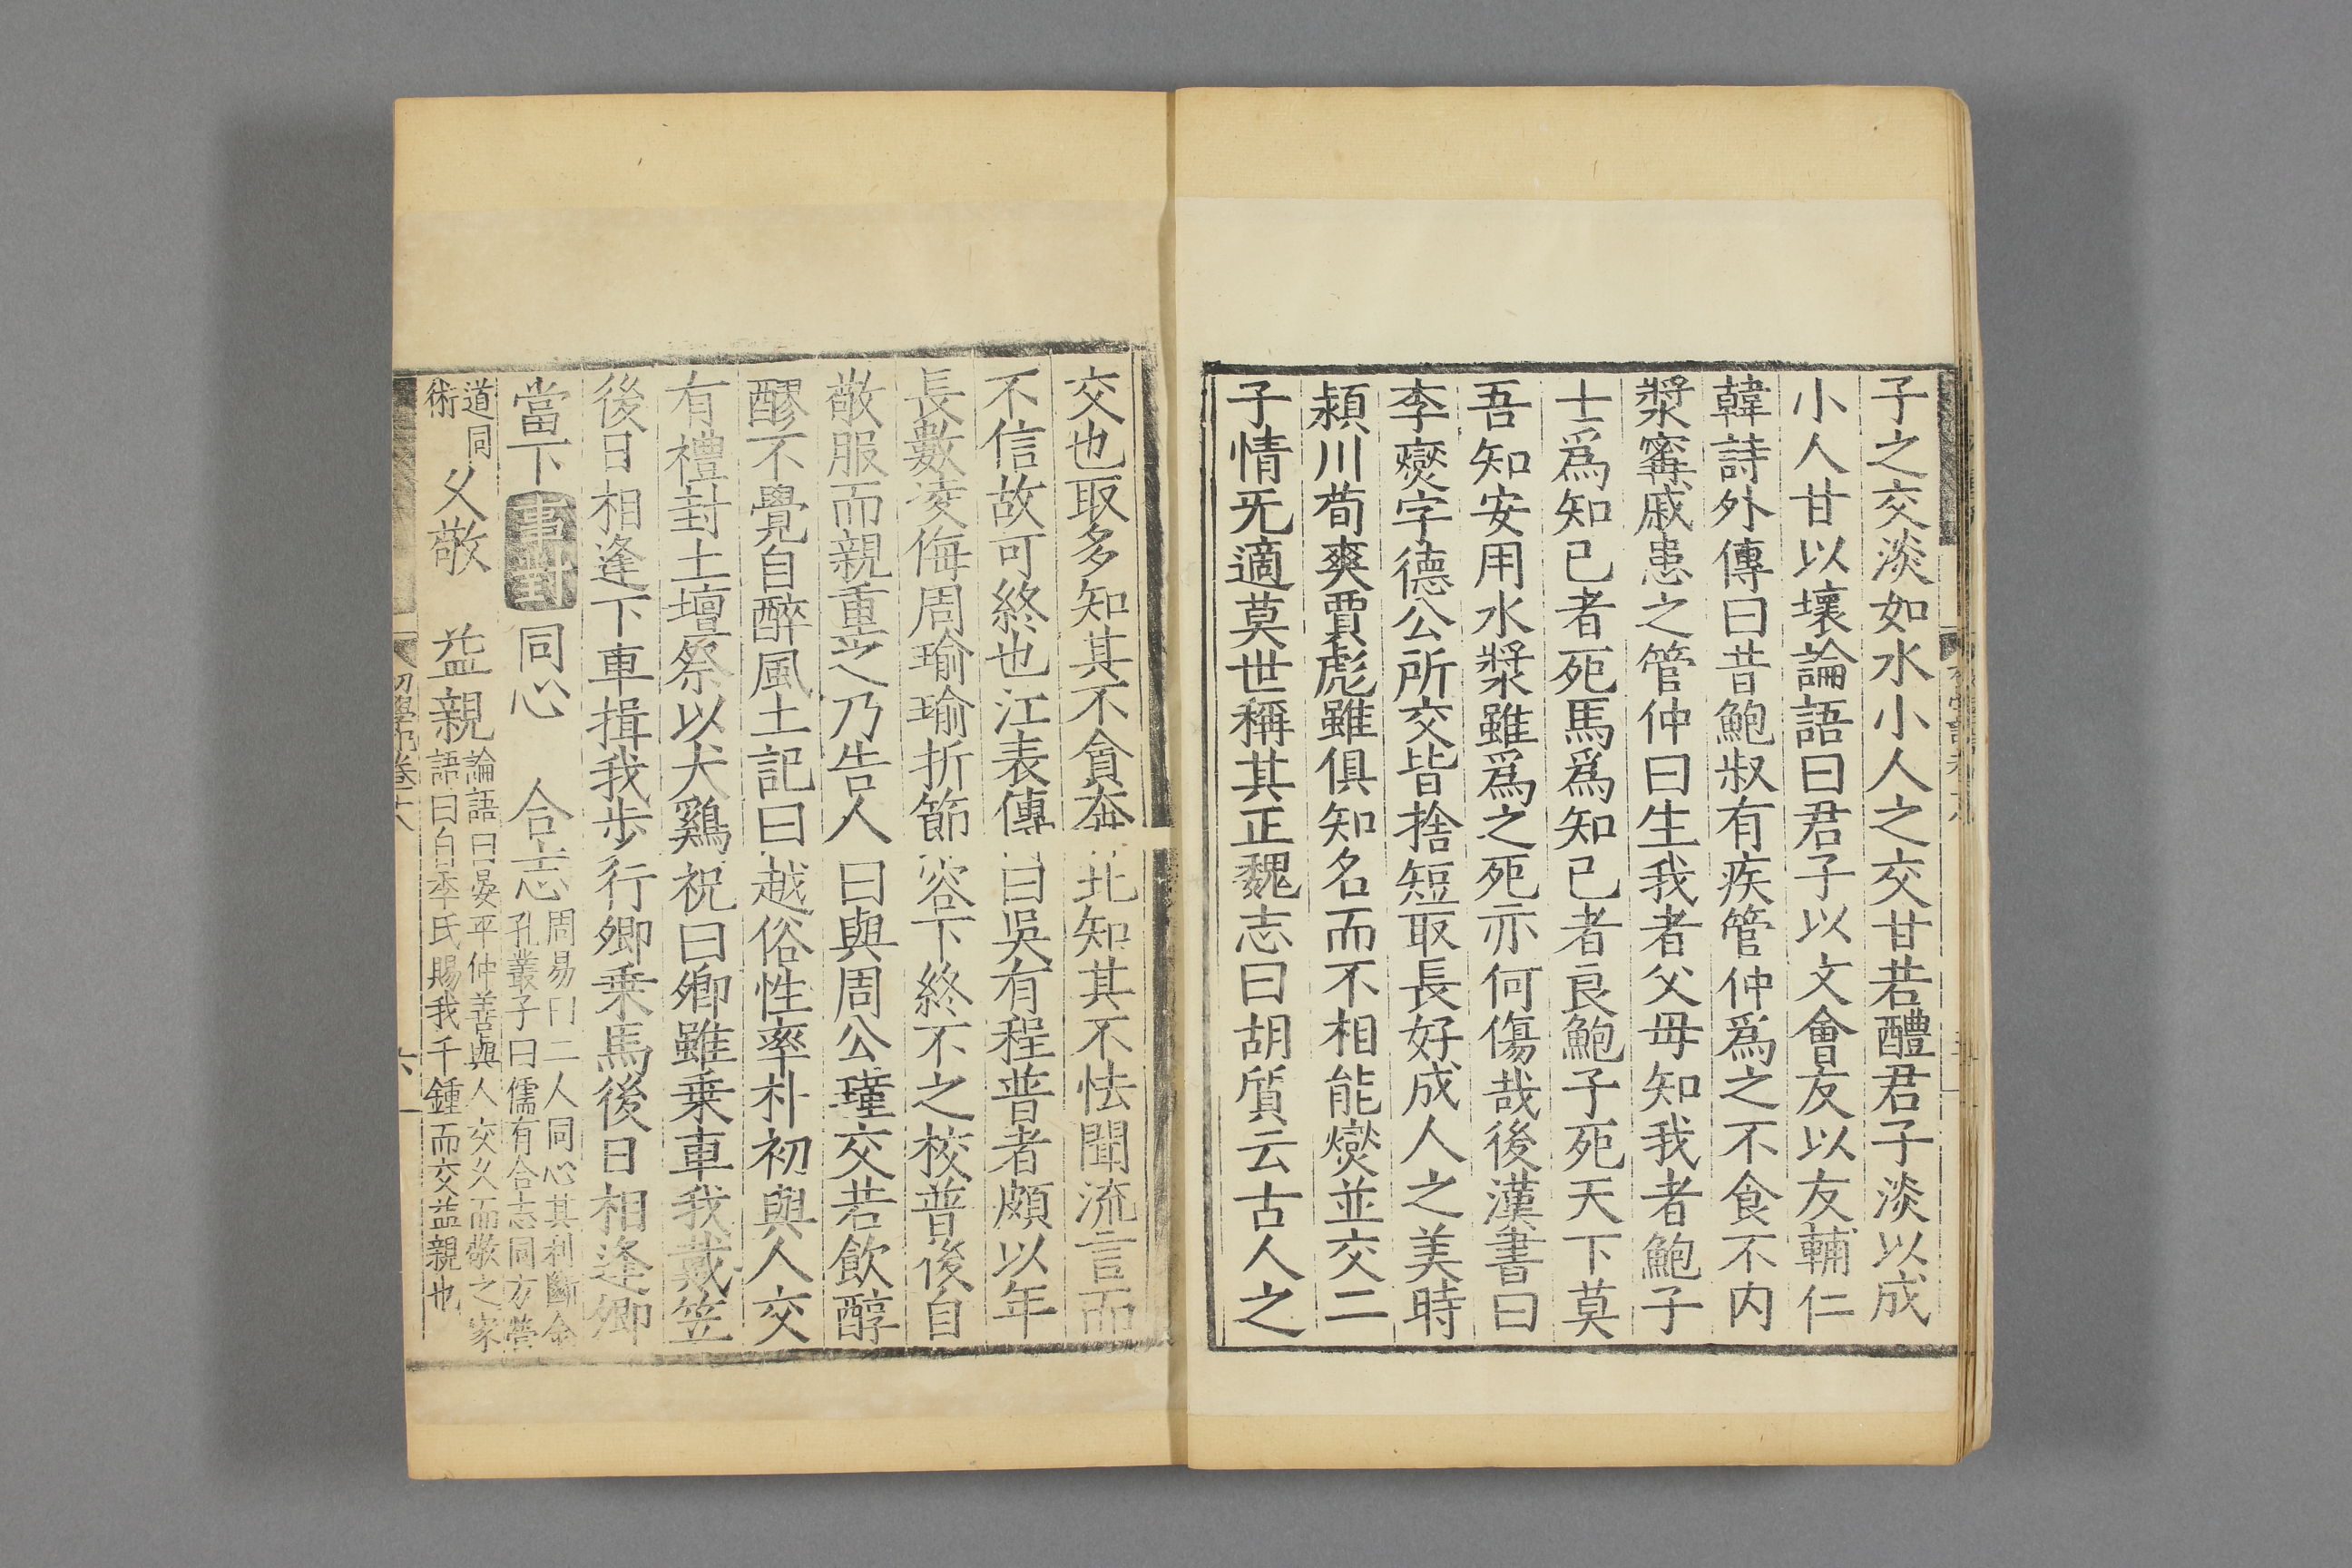 子之交淡如水小人之交甘若醴君子淡以成
小人甘以壞論語曰君子以文會友以友輔仁
韓詩外傳曰昔鮑叔有疾管仲爲之不食不内
漿寗戚患之管仲曰生我者父母知我者鮑子
士爲知已者死馬爲知已者良鮑子死天下莫
吾知安用水漿雖爲之死亦何傷哉後漢書曰
李爕字德公所交皆捨短取長好成人之美時
潁川荀爽賈彪雖俱知名而不相能爕並交二
子情无適莫世稱其正魏志曰胡質云古人之
交也取多知其不貪奔北知其不怯聞流言而
不信故可終也江表傳曰吳有程普者頗以年
長數凌侮周瑜瑜折節容下終不之校普後自
敬服而親重之乃告人曰與周公瑾交若飲醇
醪不覺自醉風土記曰越俗性率朴初與人交
有禮封土壇祭以犬鷄祝曰卿雖乗車我戴笠
後日相逢下車揖我步行卿乗馬後日相逢卿
當下事對同心 合志周易曰二人同心其利斷金
孔叢子曰儒有合志同方營
道同
術 乆敬 益親論語曰晏平仲善與人交乆而敬之家
語曰自季氏賜我千鍾而交益親也
初學記卷十八
六